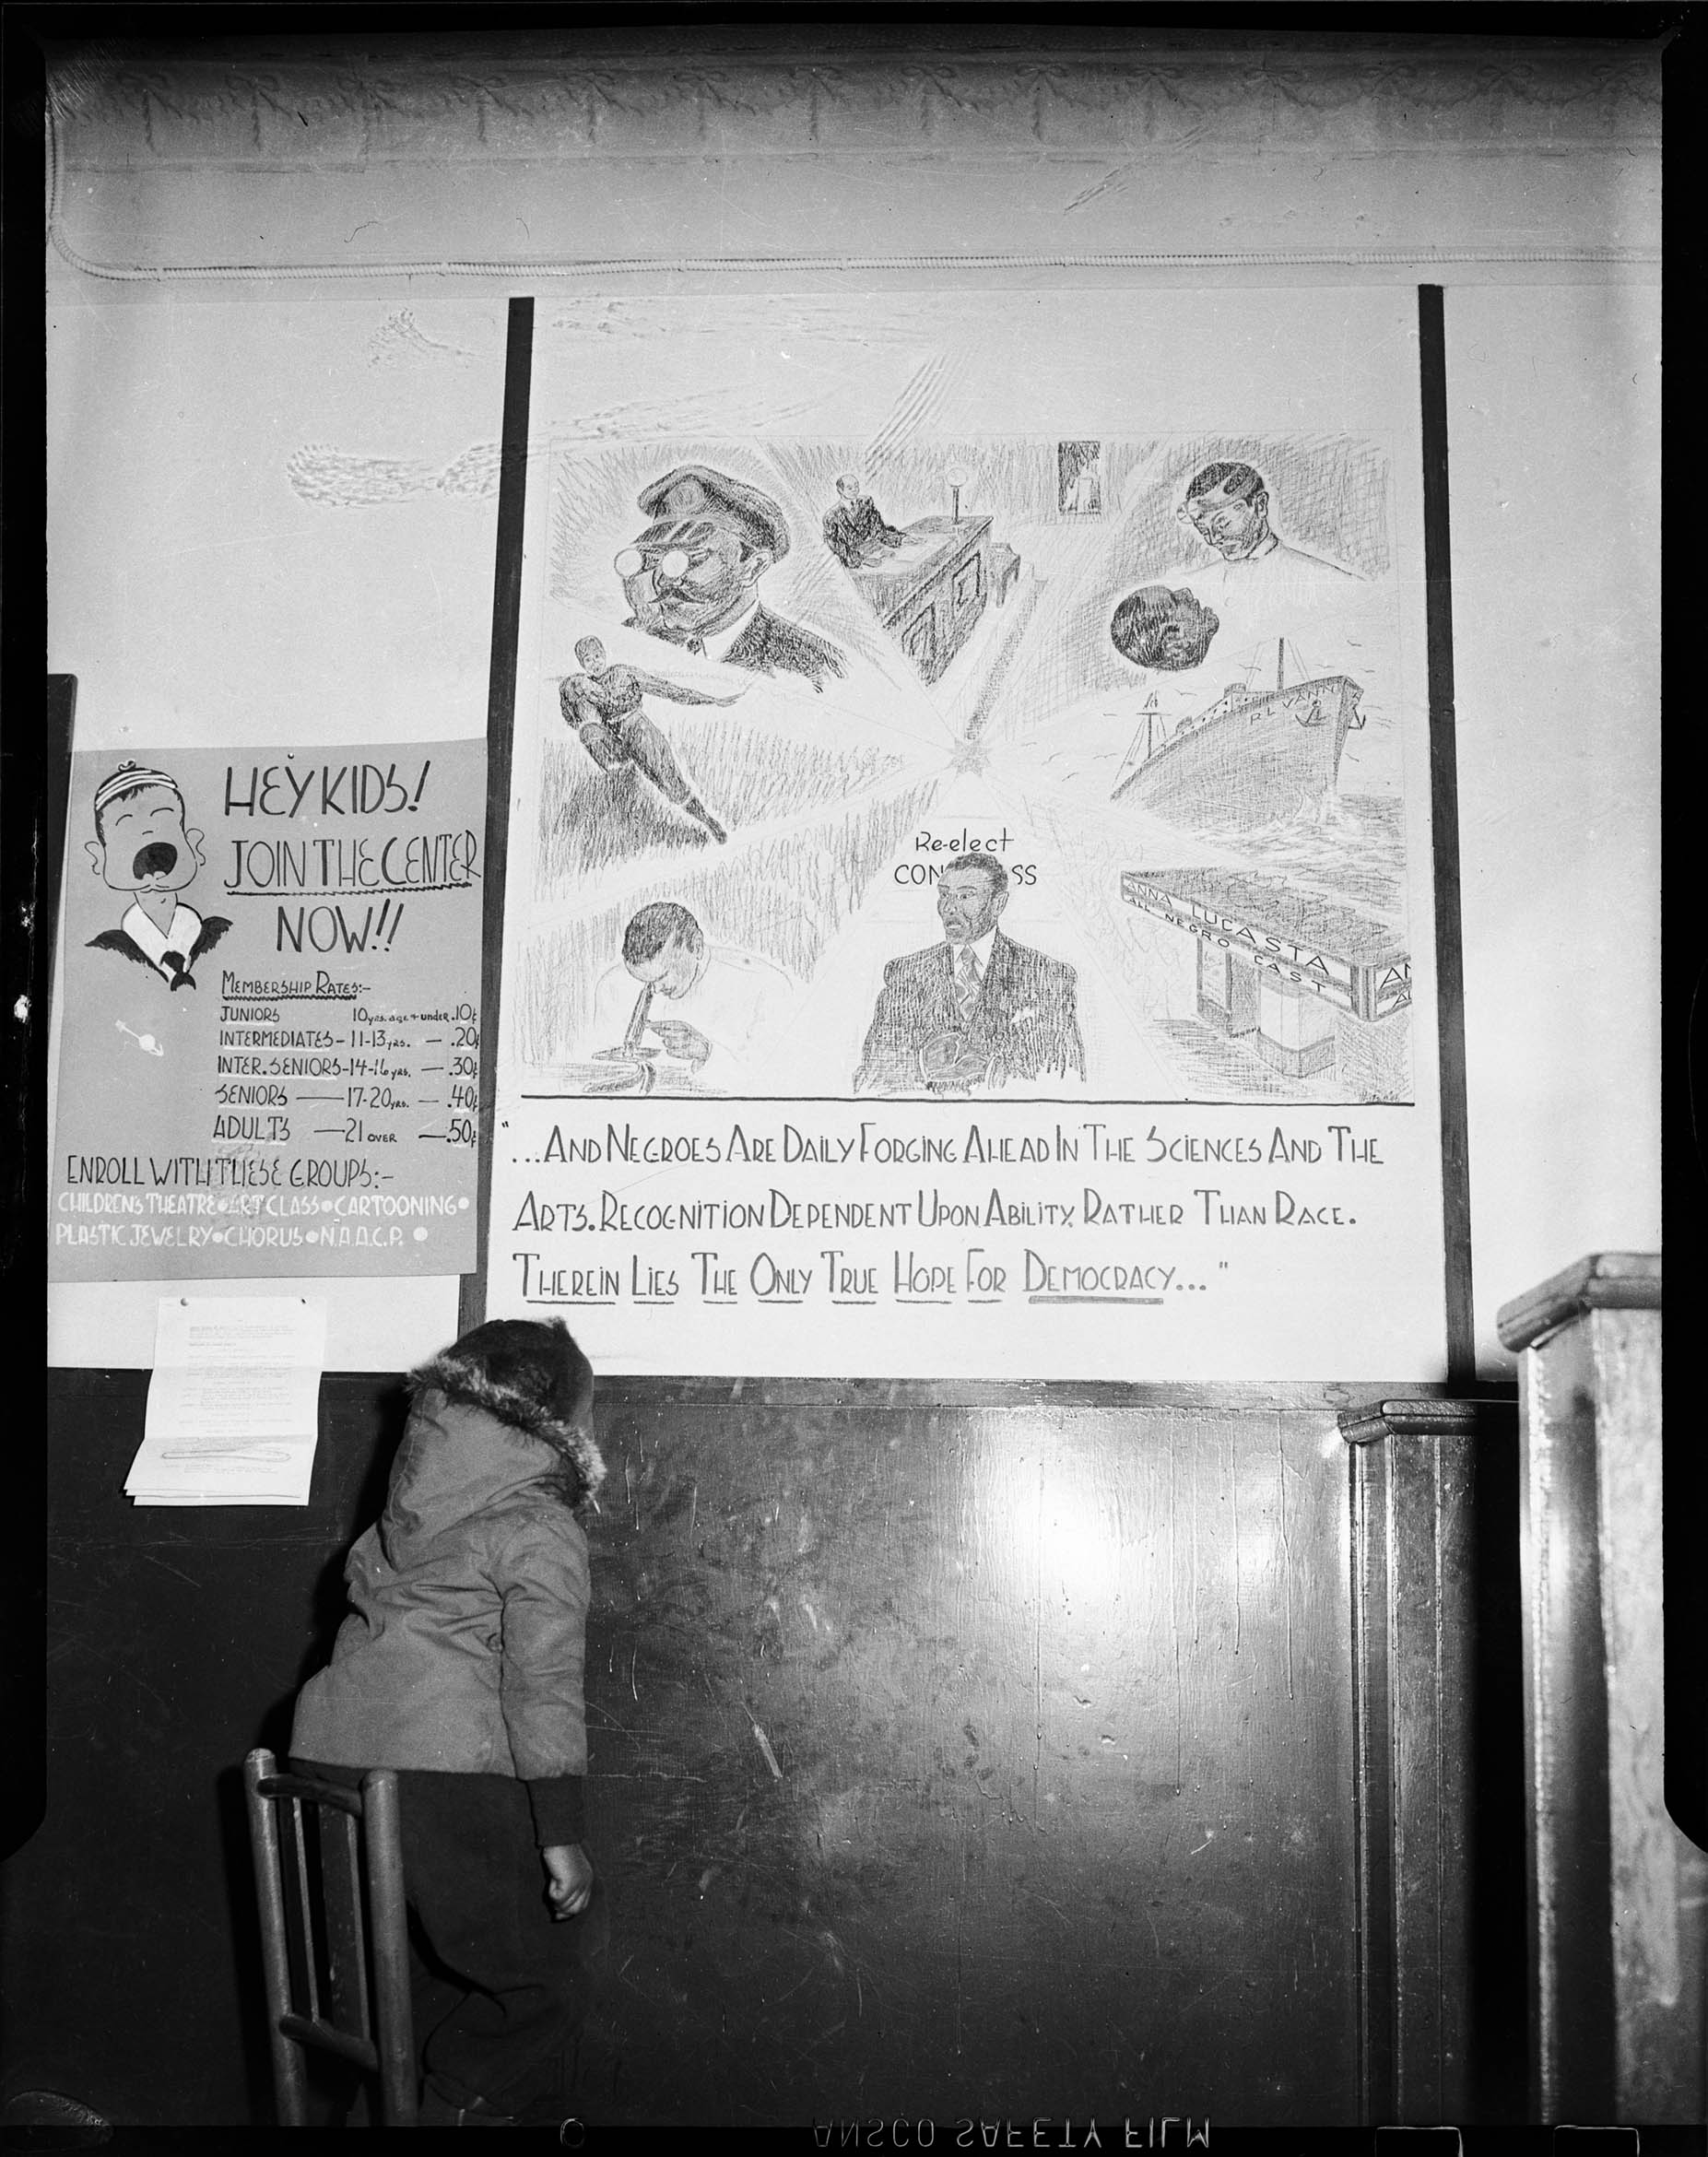 HEY KIDS!
JOIN THE CENTER
NOW!!
MEMBERSHIP RATES:-
JUNIORS 10 yrs. age + under .10¢
INTERMEDIATES - 11-13 yrs. — .20¢
INTER. SENIORS - 14-16 yrs. — .30¢
SENIORS — 17-20 yrs. — .40¢
ADULTS — 21 OVER — .50¢
ENROLL WITH THESE GROUPS:-
CHILDRENS THEATRE • ART CLASS • CARTOONING •
PLASTIC JEWELRY • CHORUS • N.A.A.C.P. •
Re-elect
CON SS
ANNA LUCASTA
ALL NEGRO CAST
"...AND NEGROES ARE DAILY FORGING AHEAD IN THE SCIENCES AND THE
ARTS. RECOGNITION DEPENDENT UPON ABILITY, RATHER THAN RACE.
THEREIN LIES THE ONLY TRUE HOPE FOR DEMOCRACY..."
ANSCO SAFETY FILM